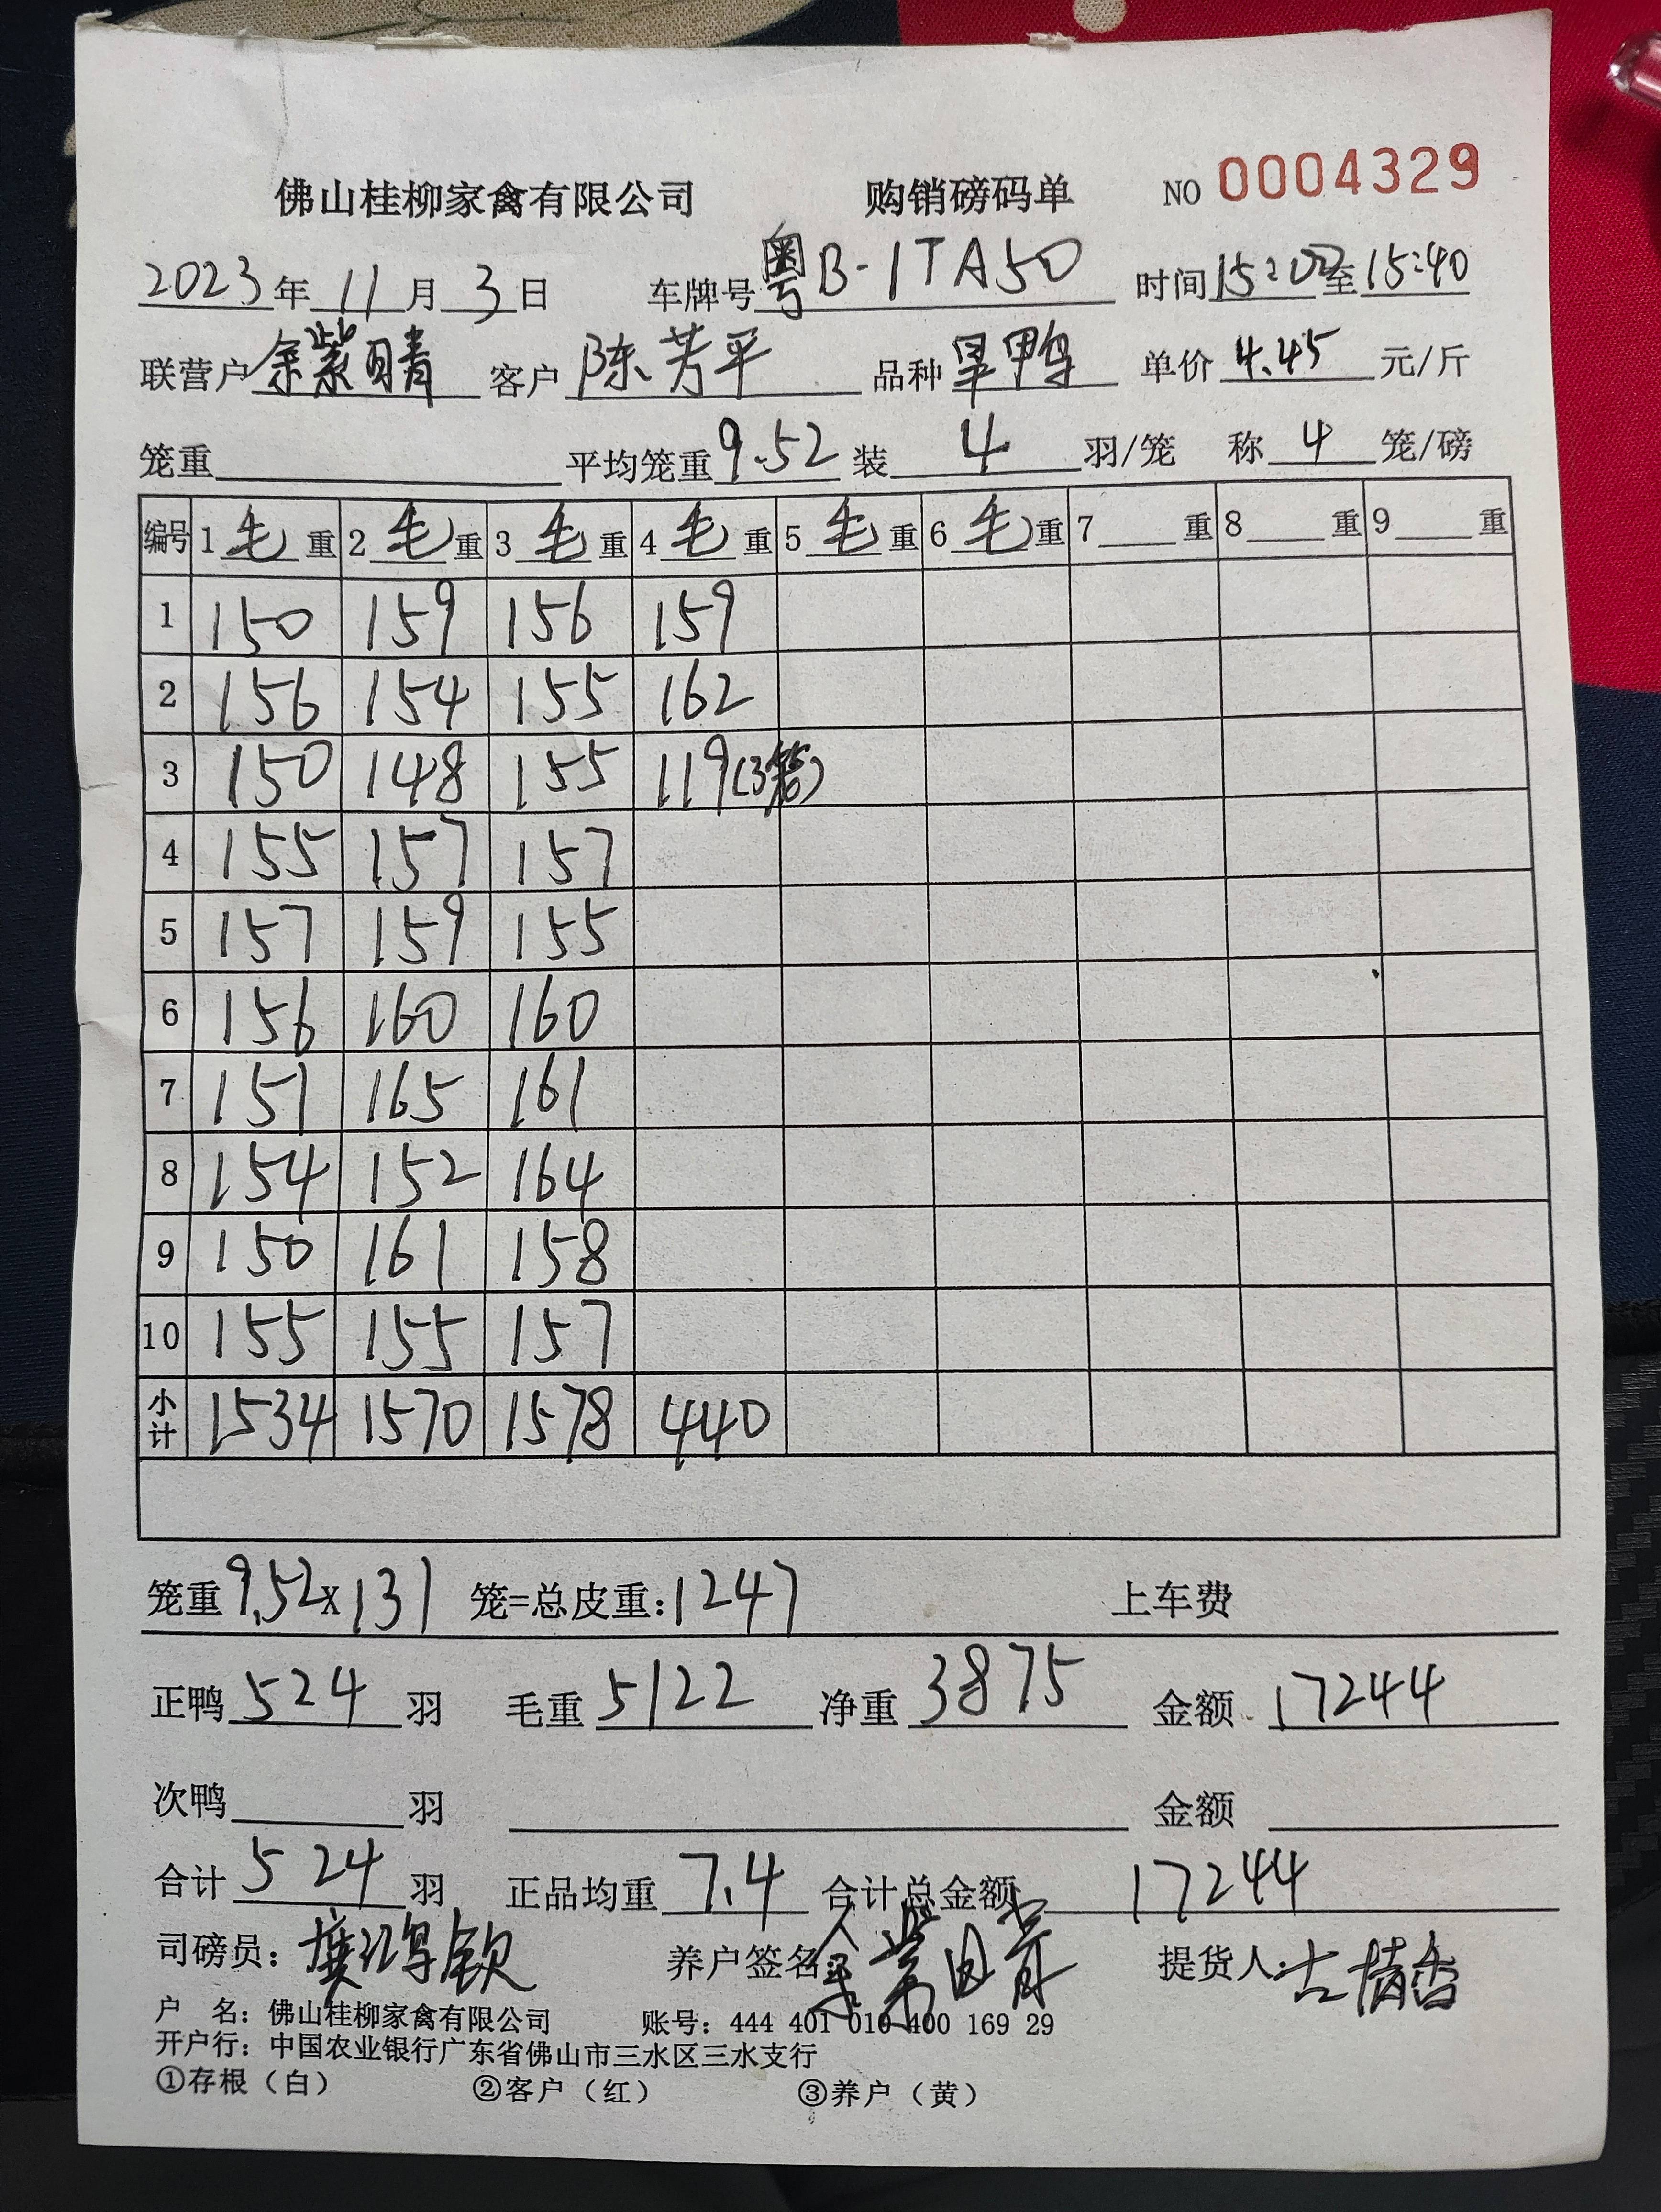 佛山桂柳家禽有限公司 购销磅码单 NO 0004329
2023年 11月 3日 车牌号 粤B-1TA50 时间 15:00至15:40
联营户 余紫晴 客户 陈芳平 品种 旱鸭 单价 4.45 元/斤
笼重 平均笼重 9.52 装 4 羽/笼 称 4 笼/磅
编号 1 毛 重 2 毛 重 3 毛 重 4 毛 重 5 毛 重 6 毛 重 7 重 8 重 9 重
1 150 159 156 159
2 156 154 155 162
3 150 148 155 119(3笼)
4 155 157 157
5 157 159 155
6 156 160 160
7 151 165 161
8 154 152 164
9 150 161 158
10 155 155 157
小计 1534 1570 1578 440
笼重 9.52x131 笼=总皮重: 1247 上车费
正鸭 524 羽 毛重 5122 净重 3875 金额 17244
次鸭 羽 金额
合计 524 羽 正品均重 7.4 合计总金额 17244
司磅员: 养户签名 余紫晴 提货人:
户 名: 佛山桂柳家禽有限公司 账号: 444 401 010 400 169 29
开户行: 中国农业银行广东省佛山市三水区三水支行
①存根（白） ②客户（红） ③养户（黄）